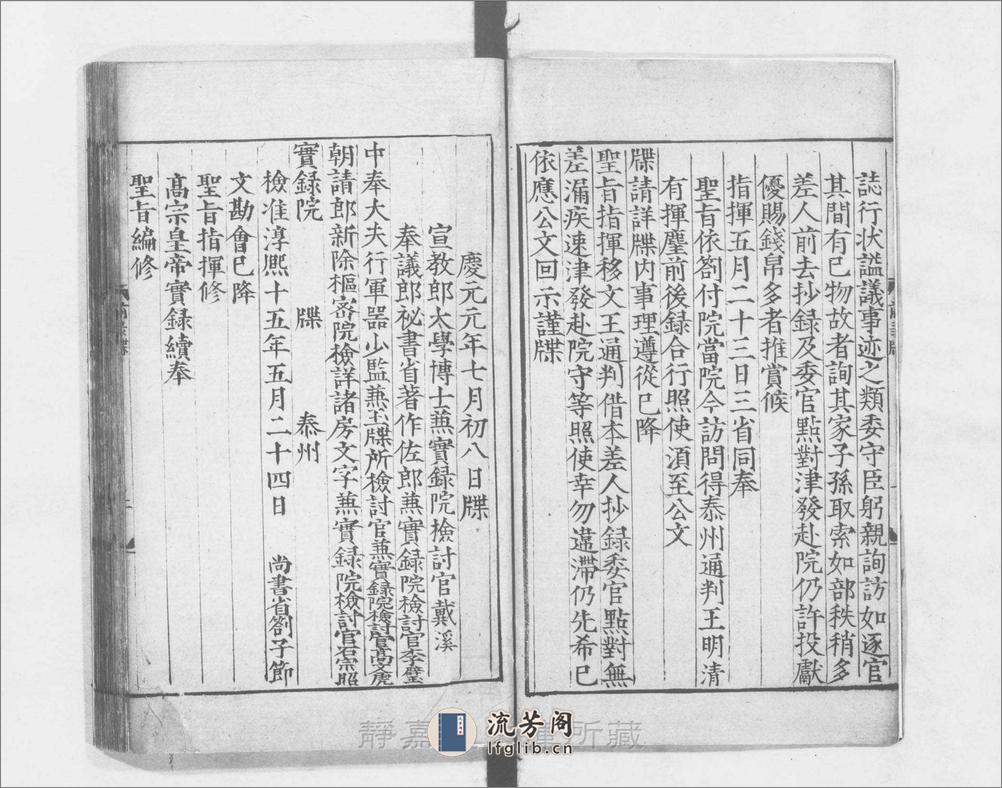 誌行狀謚議事迹之類委守臣躬親詢訪如逐官
其間有已物故者詢其家子孫取索如部秩稍多
差人前去抄録及委官點對津發赴院仍許投獻
優賜錢帛多者推賞候
指揮五月二十三日三省同奉
聖旨依劄付院當院今訪問得泰州通判王明清
有揮麈前後録合行照使湏至公文
牒請詳牒内事理遵從已降
聖旨指揮移文王通判借本差人抄録委官點對無
差漏疾速津發赴院守等照使幸勿違滯仍先希已
依應公文回示謹牒
慶元元年七月初八日牒
宣教郎太學博士兼實録院檢討官戴溪
奉議郎祕書省著作佐郎兼實録院檢討官李壁
中奉大夫行軍器少監兼玉牒所檢討官兼實録院檢討官高文虎
朝請郎新除樞密院檢詳諸房文字兼實録院檢討官石宗昭
實録院 牒 泰州
檢准淳熙十五年五月二十四日 尚書省劄子節
文勘會已降
聖旨指揮修
高宗皇帝實録續奉
聖旨編修
静嘉 所藏
流芳阁
lfglib.cn